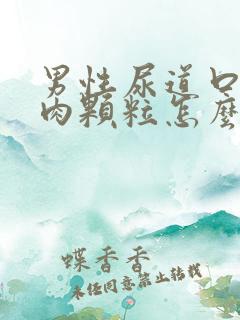 男性尿道口
肉顆粒怎麼
蝶香香
未经同意禁止转载